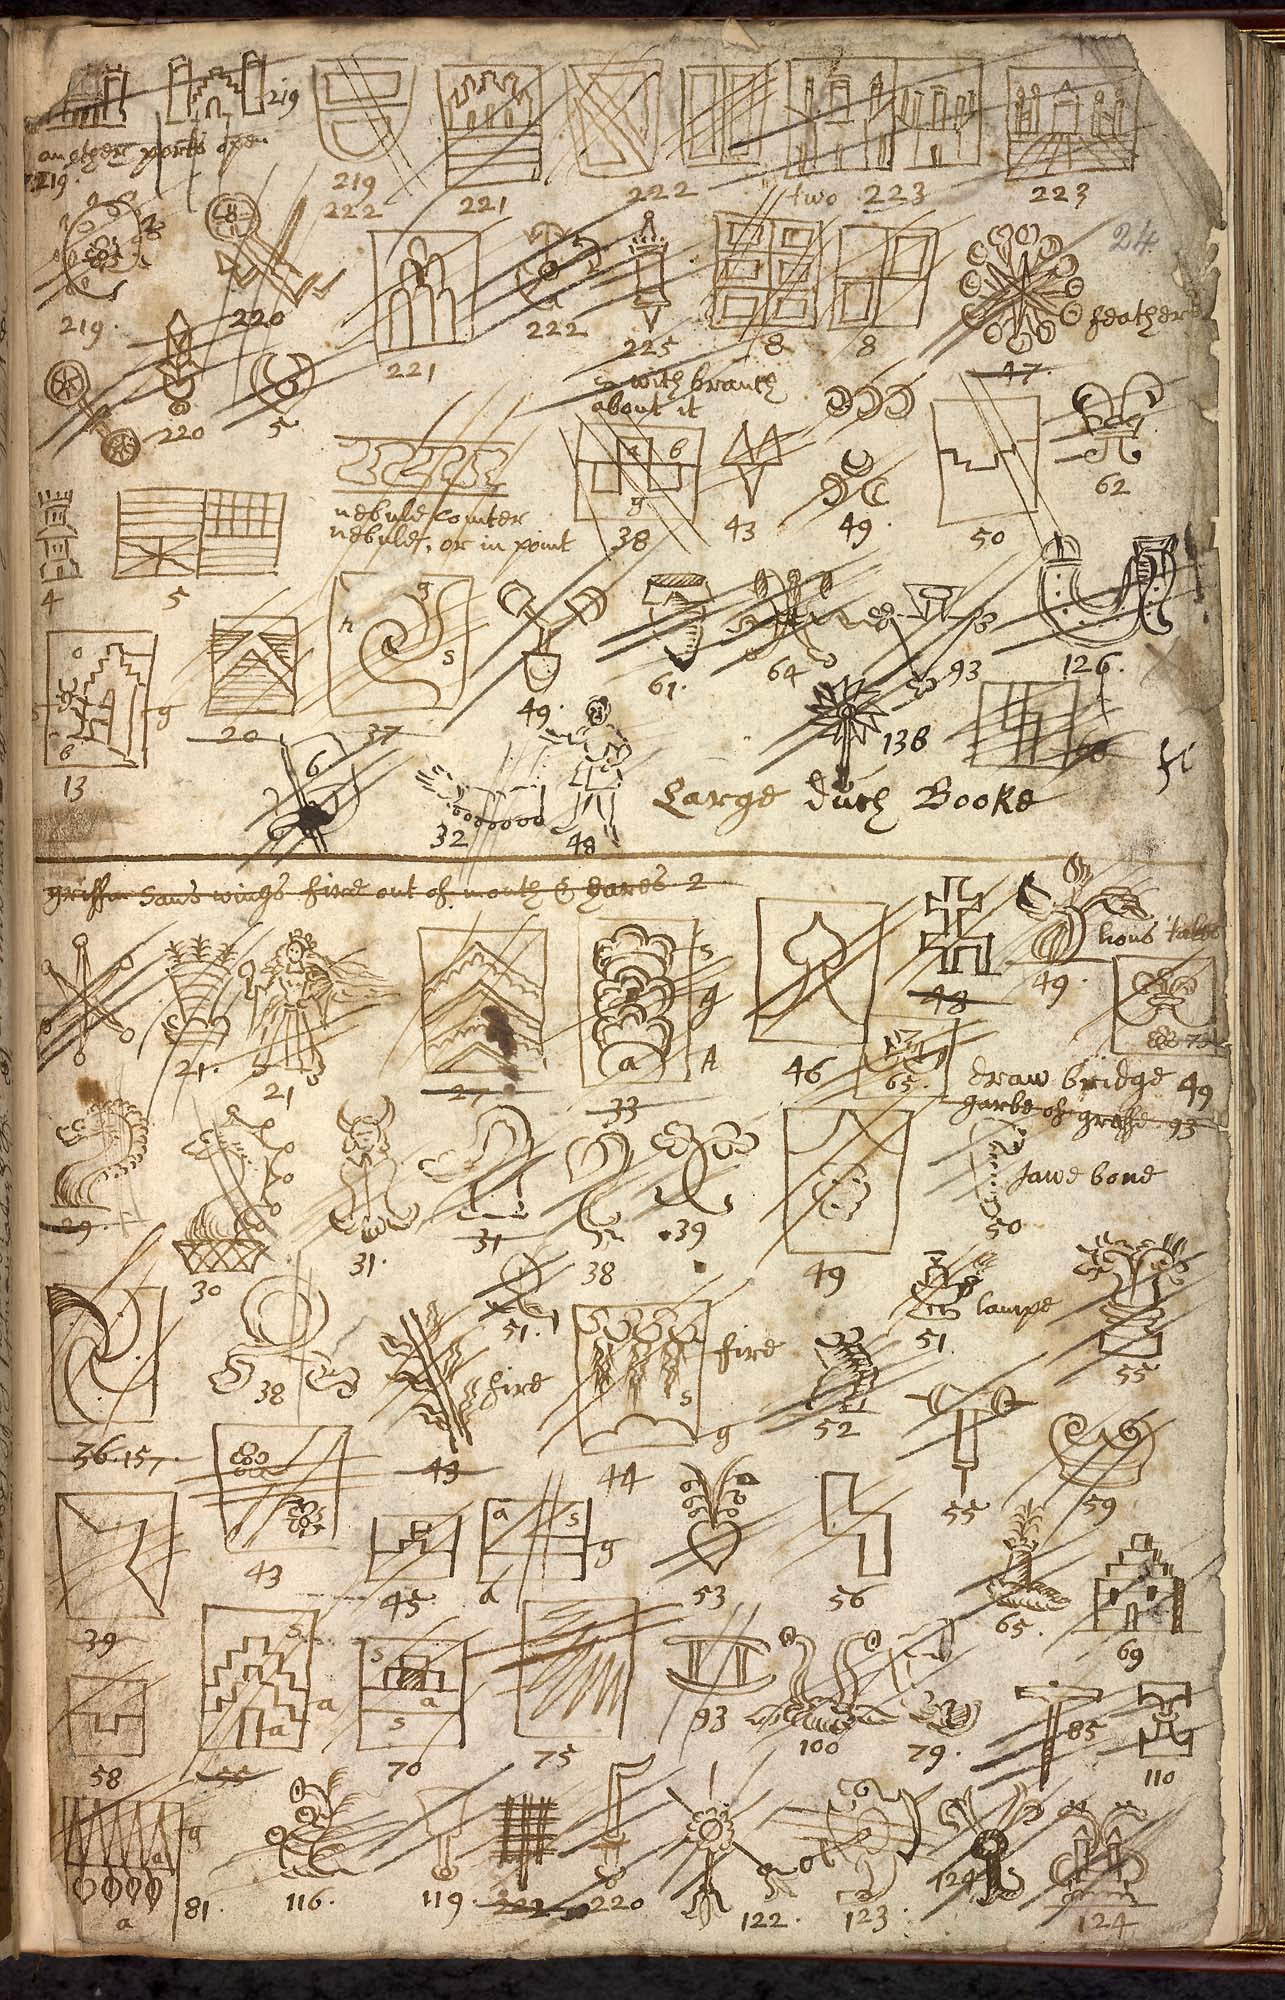 219
another ports open
219.
219
222
221
222
two 223
223
24
219.
220
221
222
225
8
8
feathers
47
220
5
s with branch
about it
a b
g
38
43
49.
50
62
4
5
nebule counter
nebule, or in point
o
g
B
13
20
g
h
s
37
49.
61.
64
93
126.
138
6
32
48
Large duch Booke
griffin sans wings fire out of mouth & eares 2
21.
21
27
s
g
a
A
33
46
48
49.
lions
73
65.
draw bridge 49
garbe of 93
29.
30
31.
31
38
39
49
Jawe bone
50
36.157.
38
51.
fire
43
fire
s
g
44
52
51
lampe
55
55
59
39
43
45
a
s
g
a
53
56
65.
69
58
s
a
a
55
s
a
s
70
75
93
100
79.
85
110
g
a
a
81.
116.
119
222
220
122.
123.
124
124